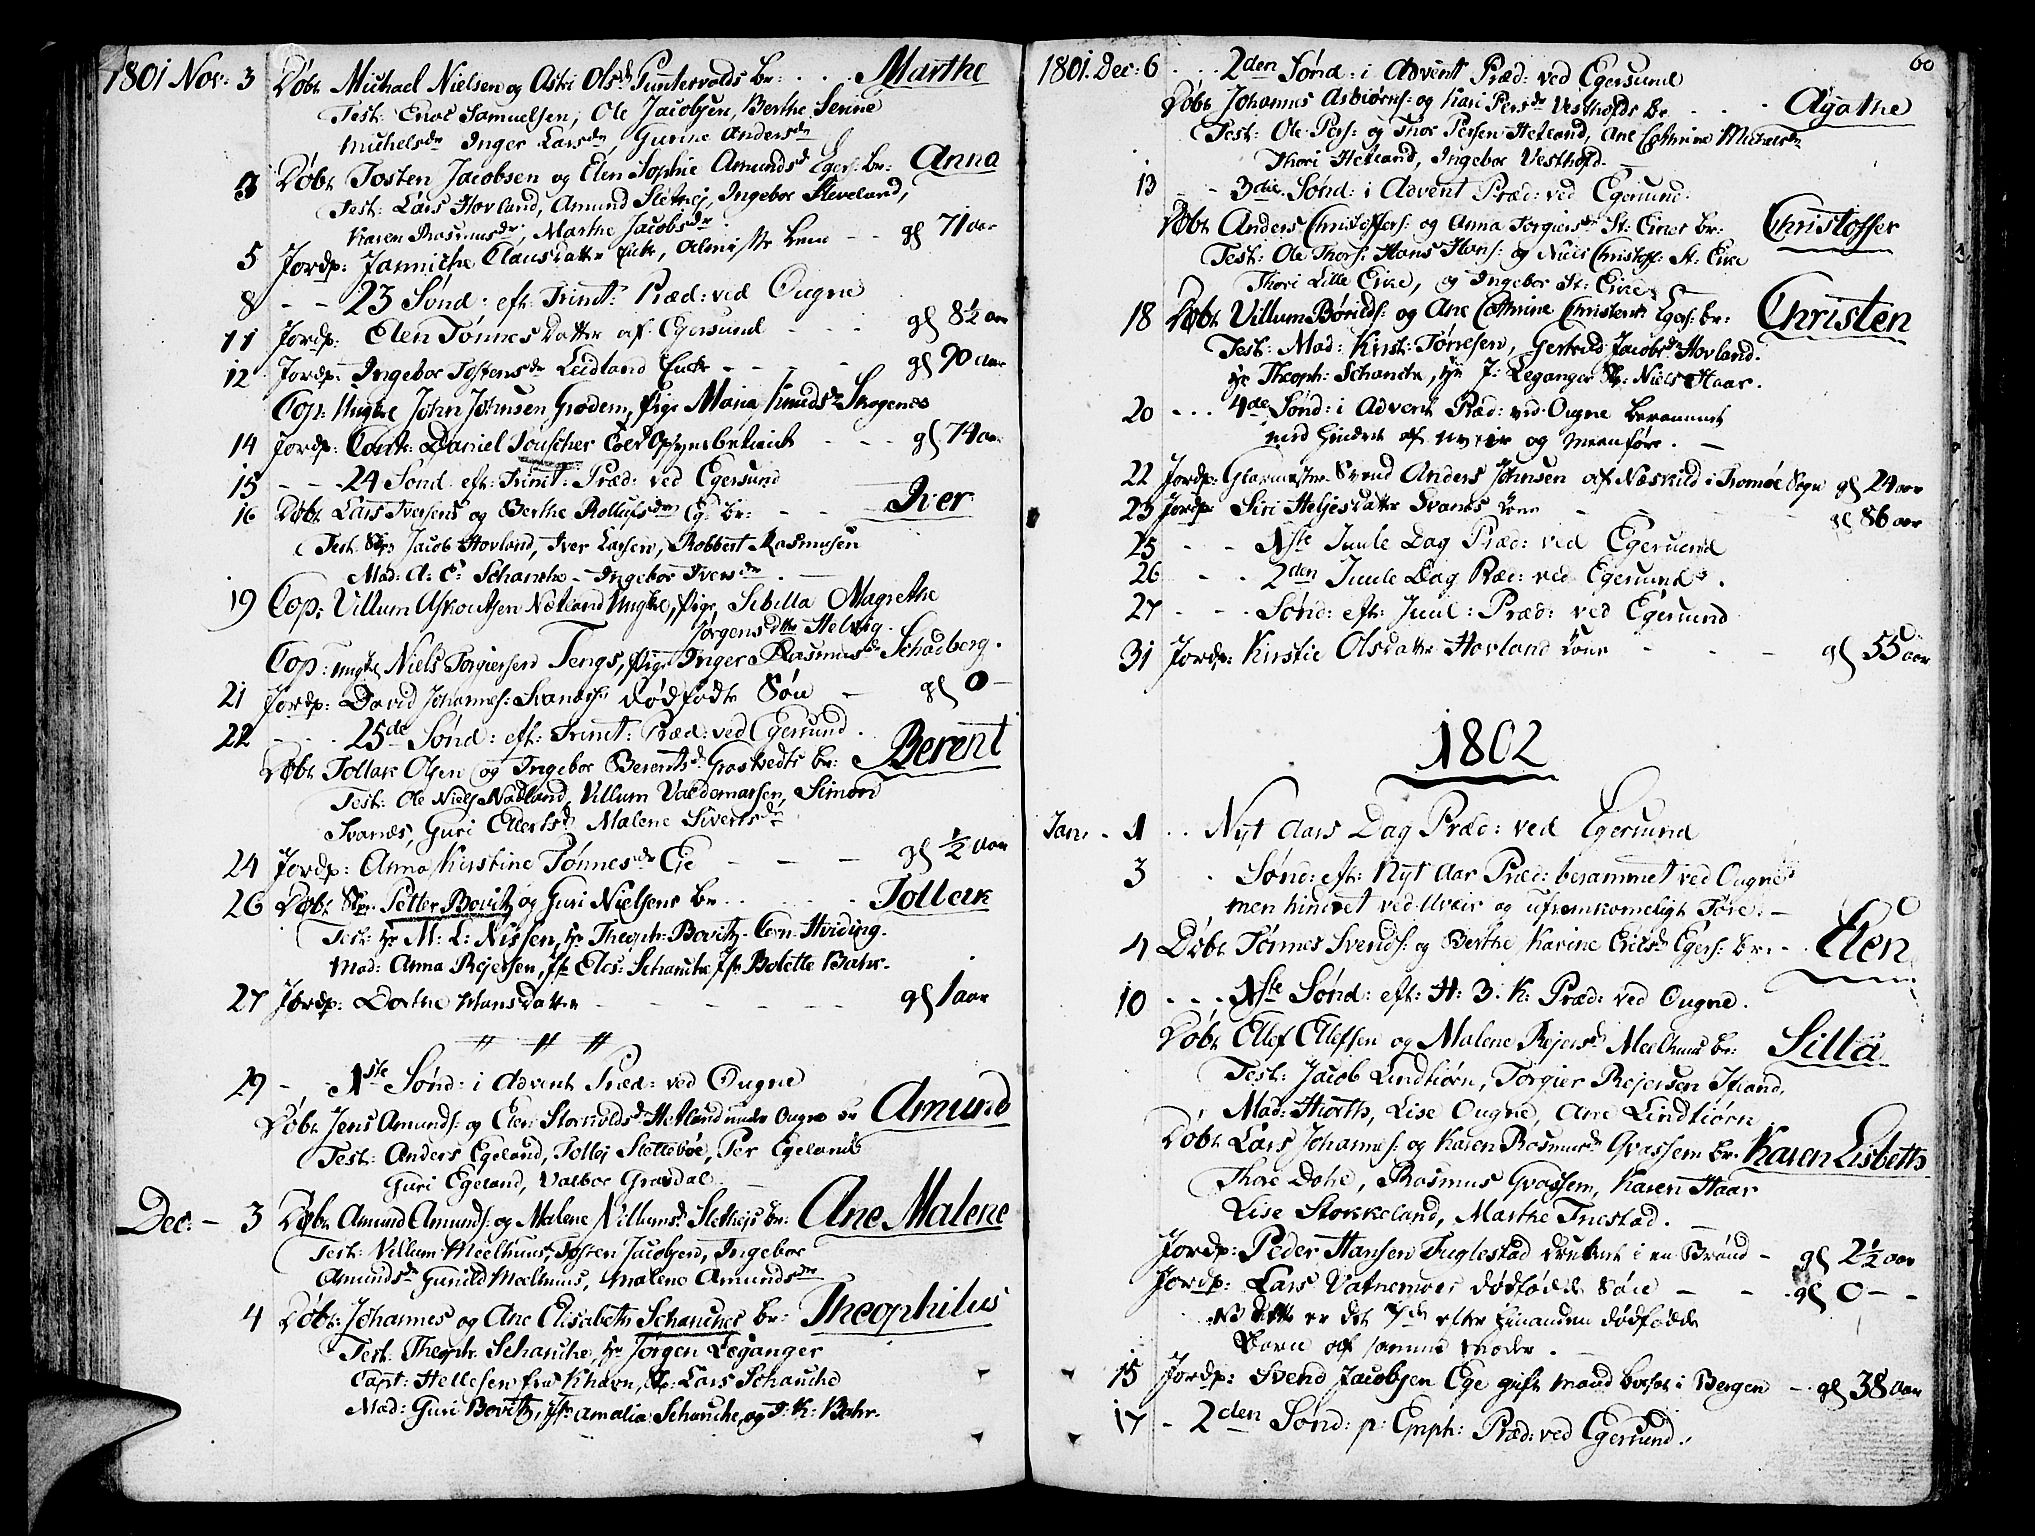 1801 Nov: 3 Døbt Michael Nielsen og Astri Olsdr Puntervolds br: . . . Marthe
Test: Enoc Samuelsen, Ole Jacobsen, Berthe Serine
Michelsdr Inger Larsdr, Gurine Andersdr
3 Døbt Tosten Jacobsen og Elen Sophie Amundsdr Egers: br: Anna
Test: Lars Hovland, Amund Sletthej, Ingebor Skeveland,
Karen Rasmusdr, Marthe Jacobsdr
5 Jordp: Jannicke Clausdatter Enke, Almisse Lem - - gl 71 aar
8 - - 23 Sønd: eft: Trinit: Præd: ved Ougne
11 Jordp: Elen Tønnesdatter af Egersund - - - gl 8½ aar
12 Jordp: Ingebor Tostensdr Leidland Enke - - - gl 90 aar
Cop: Ungkl John Johnsen Grødem, Pige Maria Knudsdr Skogenes
14 Jordp: Cont: Daniel Touscher Told Opsynsbetient - - - gl 74 aar
15 - - 24 Sønd. eft: Trinit: Præd: ved Egersund
16 Døbt Lars Iversens og Berthe Rollufsdr Eg: br: - - Iver
Test: Skp: Jacob Hovland, Iver Larsen, Robbert Rasmusen
Mad: A: C: Schancke - Ingebor Iversdr
19 Cop: Villum Askoutsen Netland Ungkl, Pige Sibilla Magrethe
Jørgensdtr Helvig.
Cop: Ungkl Niels Torgiersen Tengs, Pige Inger Rasmusdr Schadberg.
21 Jordp: David Johannes: Svanes's dødfødte Søn - gl 0 -
22 - . . 25de Sønd: eft: Trinit: Præd: ved Egersund.
Døbt Tollak Olsen og Ingebor Berentsdr Gastvedts br: Berent
Test: Ole Niels Nodland, Villum Valdemarsen, Simon
Svanes, Guri Ellertsdr Malene Sivertsdr
24 Jordp: Anna Kirstine Tønnesdr Eie - - - gl ½ aar
26 Døbt Skp: Petter Bovitz og Guri Nielsens br . . . . Tollak
Test: Hr M: L: Nissen, Hr Theoph: Bovitz. Corn: Hviding.
Mad: Anna Rejersen, Jfr Eles: Schancke, Jfr Bolette Bahr.
27 Jordp: Dorthe Hansdatter - - - - - gl 1 aar
" " "
29 - 1ste Sønd: i Advent Præd: ved Ougne
Døbt Jens Amunds: og Elen Storkoldsdr Hetland under Ougne br Amund
Test: Anders Egeland, Tollej Slettebøe, Per Egeland
Guri Egeland, Valbor Gravdal. -
Dec: - 3 Døbt Amund Amunds: og Malene Villumsdr Slethejs br: Ane Malene
Test: Villum Meelhuus, Tosten Jacobsen, Ingebor
Amundsdr Gunild Meelhuus, Malene Amundsdr
4 Døbt: Johannes og Ane Elisabeth Schanches br: Theophilus
Test: Theoph: Schancke, Hr Jørgen Leganger
Capt: Hellesen fra Khavn, Skp: Lars Schancke
Mad: Guri Bovitz, Jfr Amalia Schancke, og J: K: Bahr.
60
1801. Dec: 6 . . . 2den Sønd: i Advent Præd: ved Egersund
Døbt Johannes Asbiørns: og Kari Persdr Vestholds br . . . Agathe
Test: Ole Pers: og Thor Persen Hetland, Ane Cathrine Michelsdr
Thori Hetland, Ingebor Vesthold. -
13 - - 3die Sønd: i Advent Præd: ved Egersund.
Døbt Anders Christoffers: og Anna Torgiersdr St: Eies br: Christoffer
Test: Ole Thors: Hans Hans: og Niels Christoff: St: Eie
Thori Lille Eie, og Ingebor St: Eie.
18 Døbt Villum Børilds: og Ane Cathrine Christensdr Egers: br: Christen
Test: Mad: Kirst: Tørresen, Gertrud Jacobsdr Hovland.
Hr Theoph: Schancke, Hr J: Leganger Skp: Niels Haar.
20 - . . 4de Sønd: i Advent Præd: ved Ougne berammet
med hindret af uveir og meenføre. -
22 Jordp: Glarmester Svend Anders Johnsen af Næskild i Tromøe Sogn gl 24 aar
23 Jordp: Siri Heljesdatter Svanes Kone - - - - gl 86 aar
25 - - - 1ste Juule Dag Præd: ved Egersund
26 - - . 2den Juule Dag Præd: ved Egersund.
27 - - - Sønd: eft: Juul: Præd: ved Egersund
31 Jordp: Kirstie Olsdatter Hovland Kone - - - gl 55 aar
1802
Jan: - 1 . . Nyt Aars Dag Præd: ved Egersund
3 . Sønd: eft: Nyt Aar Præd: berammet ved Ougne
men hindret ved Uveir og ufremkomeligt Føre. -
4 Døbt Tønnes Svends: og Berthe Karine Ericsdr Egers: br: - Elen
10 - . . 1ste Sønd: eft: H: 3: K: Præd: ved Ougne.
Døbt Ellef Ellefsen og Malene Rejersdr Meelhuus br: Silla
Test: Jacob Lindtiørn, Torgier Rejersen Itland,
Mad: Hiorth, Lise Ougne, Ane Lindtiørn
Døbt Lars Johannes: og Karen Rasmusdr Qvassem br: Karen Lisbeth
Thore Døhe, Rasmus Qvassem, Karen Haar
Lise Stokkeland, Marthe Tuestad.
Jordp: Peder Hansen Fuglestad druknet i en Brønd - gl 2½ aar
Jordp: Lars Vatnemoes dødfødde Søn - - - gl 0 - -
NB dette er det 7de efter hinanden dødfødde
Barn af samme moder.
15 Jordp: Svend Jacobsen Ege gift mand bosat i Bergen - gl 38 aar
17 - 2den Sønd: p: Epiph: Præd: ved Egersund.